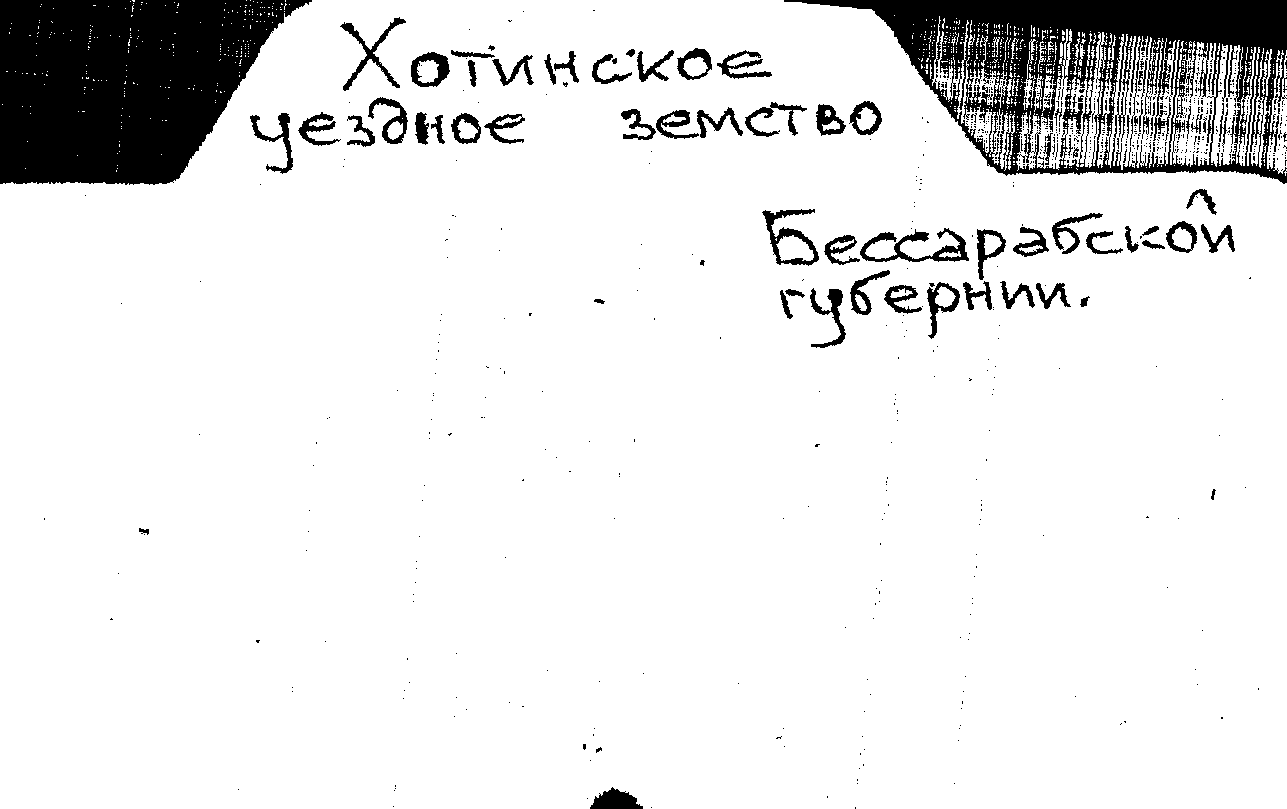 Хотинское
уездное земство
Бессарабской
губернии.